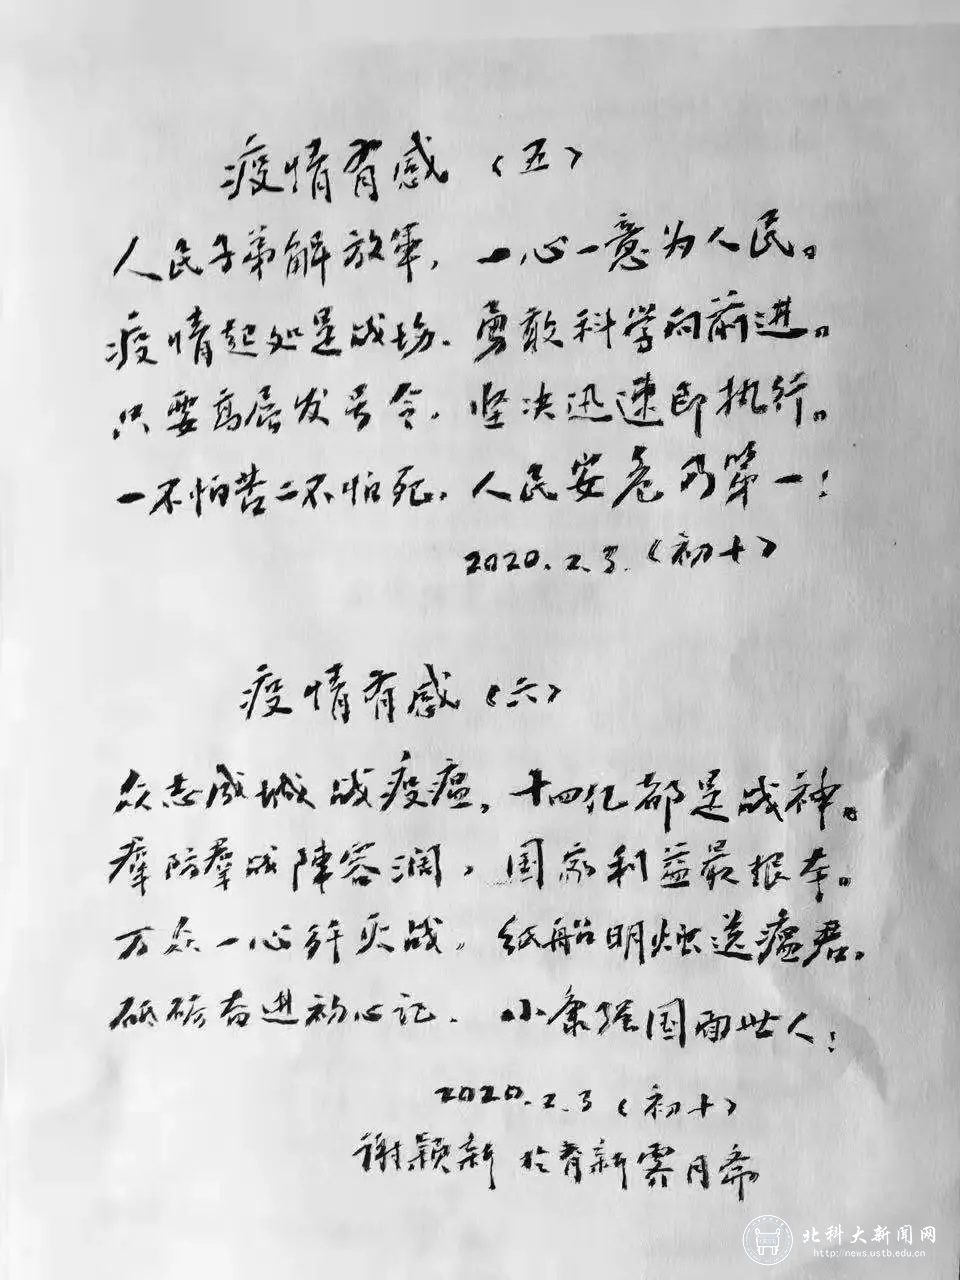 疫情有感（五）
人民子弟解放軍，一心一意为人民。
疫情起处是战场，勇敢科学向前进。
只要高层发号令，坚决迅速即执行。
一不怕苦二不怕死，人民安危乃第一！
2020.2.3.（初十）
疫情有感（六）
众志成城战疫瘟，十四亿都是战神。
羣防羣战陣容阔，国家利益最根本。
万众一心歼灭战，纸船明烛送瘟君。
砥砺奋进初心记，小康强国面世人！
2020.2.3（初十）
谢颖新 於育新霁月斋
北科大新闻网
http: news.ustb.edu.cn